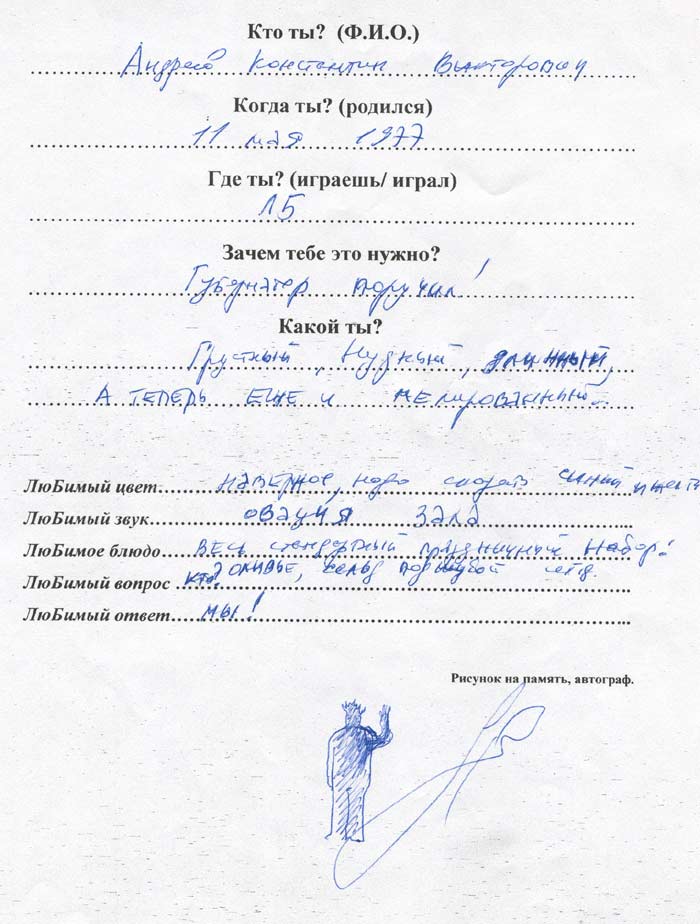 Кто ты? (Ф.И.О.)
Андреев Константин Викторович
Когда ты? (родился)
11 мая 1977
Где ты? (играешь/ играл)
ЛБ
Зачем тебе это нужно?
Губернатор поручил!
Какой ты?
Грустный, Нудный, длинный,
А ТЕПЕРЬ ЕЩЕ и мелированный.
ЛюБимый цвет НАВЕРНОЕ, надо сказать синий и желтый
ЛюБимый звук ОВАЦИЯ ЗАЛА
ЛюБимое блюдо ВЕСЬ стандартный праздничный набор:
ОЛИВЬЕ, сельд под шубой итд.
ЛюБимый вопрос КТО?
ЛюБимый ответ МЫ!
Рисунок на память, автограф.